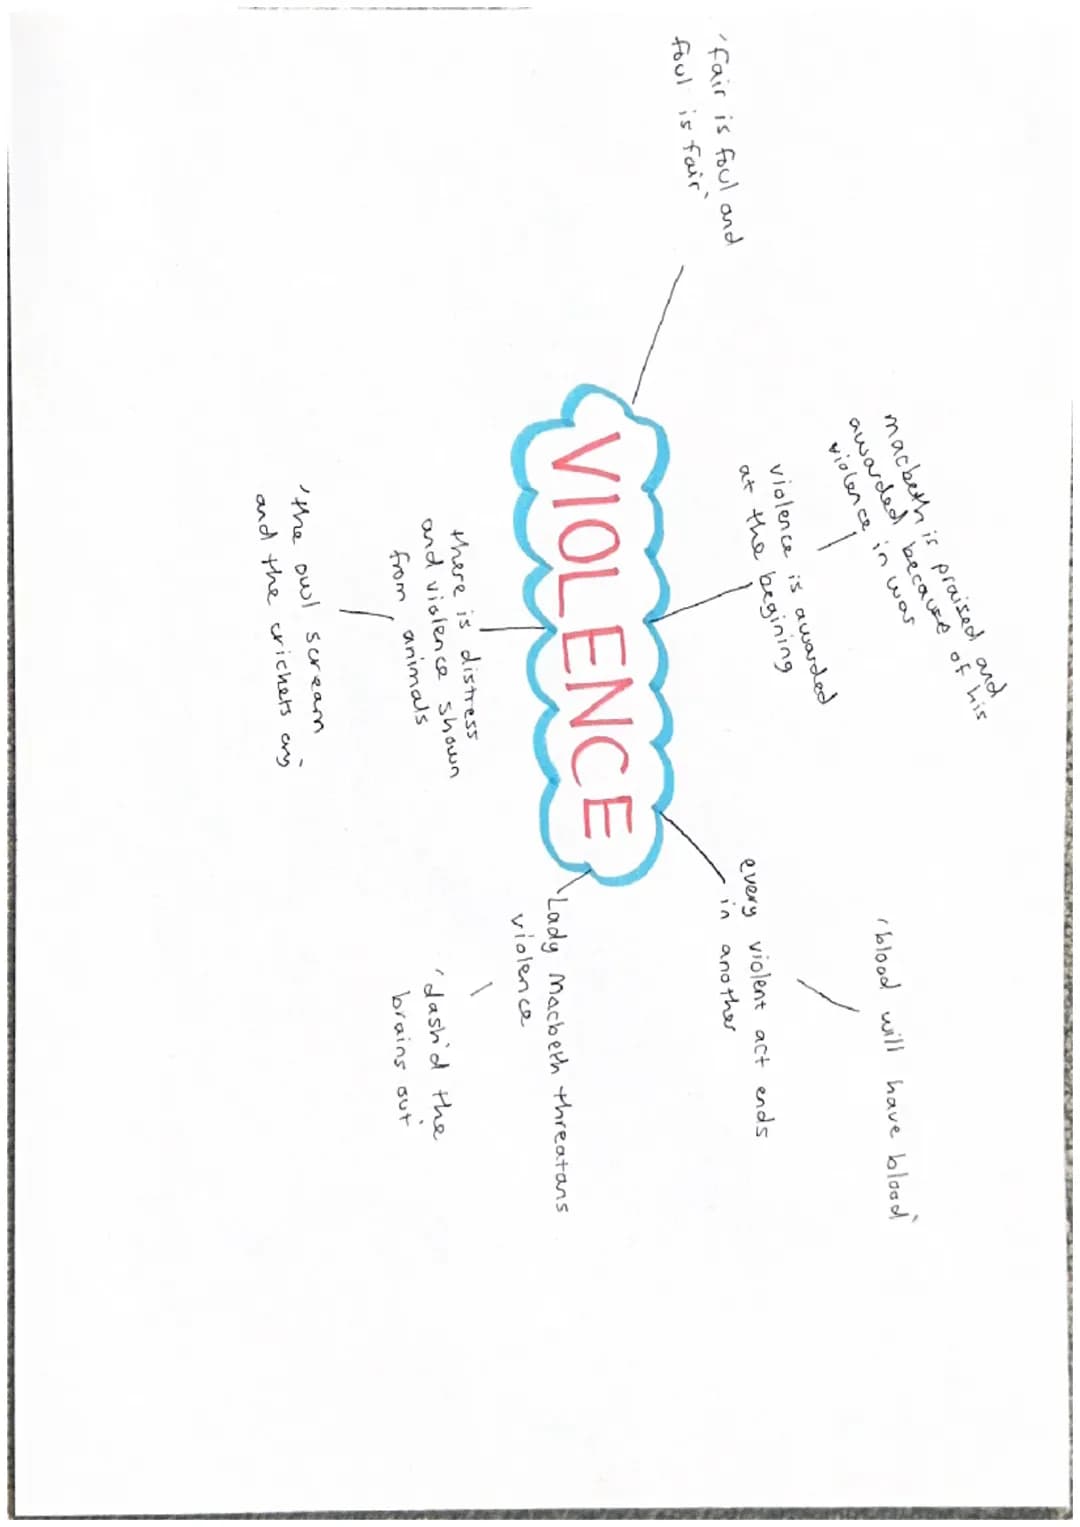 'fair is foul and
foul is fair'
macbeth is praised and
awarded because of his
violence in war
violence is awarded
at the begining
'blood will have blood'
every violent act ends
in another
VIOLENCE
Lady Macbeth threatans
violence
'dash'd the
brains out'
there is distress
and violence shown
from animals
'the owl scream
and the crickets cry'